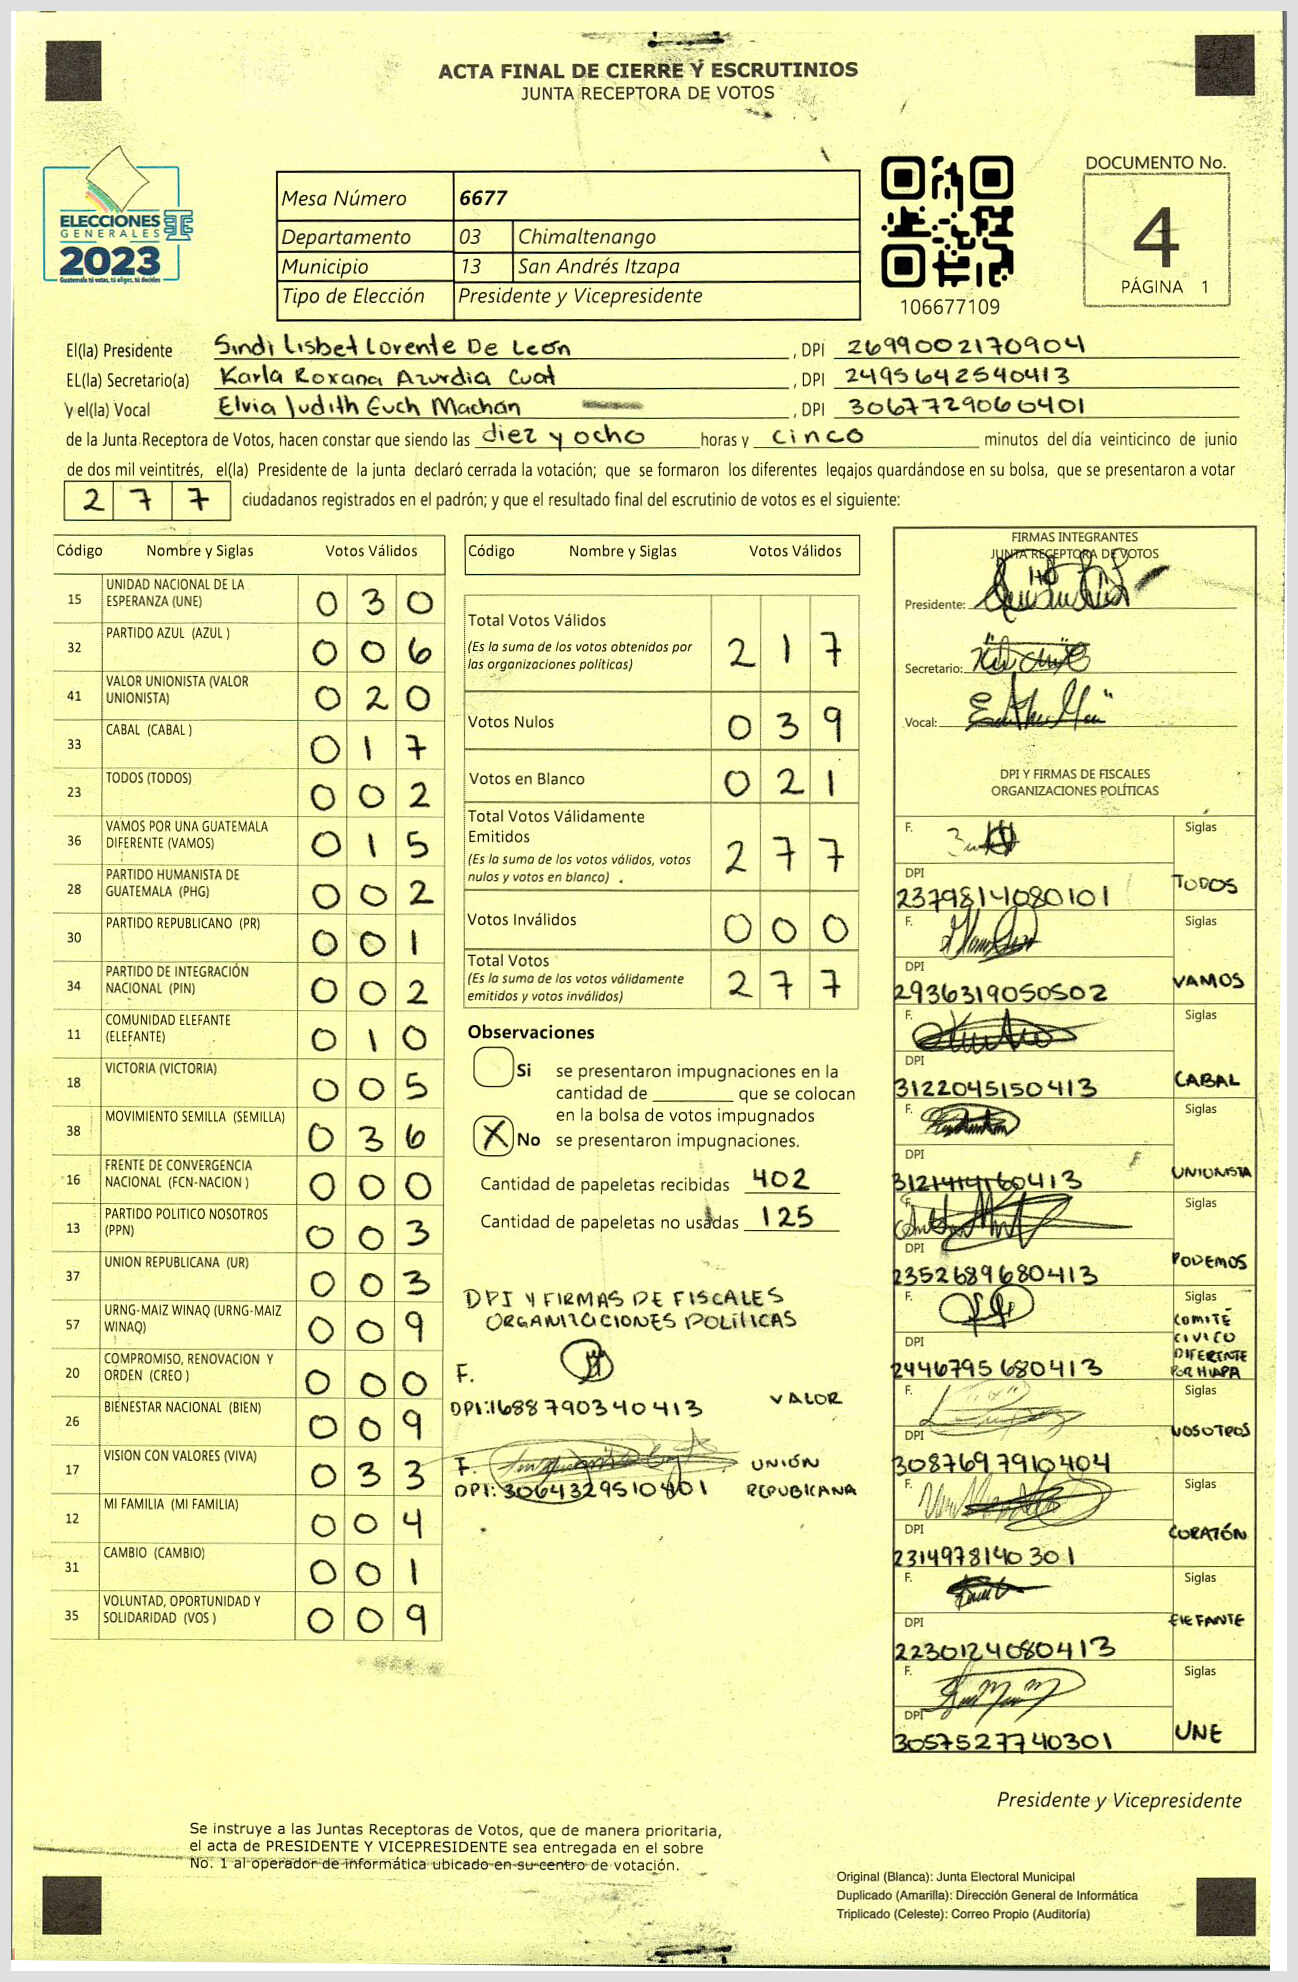 ACTA FINAL DE CIERRE Y ESCRUTINIOS
JUNTA RECEPTORA DE VOTOS
ELECCIONES
GENERALES
2023
Guatemala tú votas, tú eliges, tú decides
Mesa Número 6677
Departamento 03 Chimaltenango
Municipio 13 San Andrés Itzapa
Tipo de Elección Presidente y Vicepresidente
106677109
DOCUMENTO No.
4
PÁGINA 1
El(la) Presidente Sindi Lisbet Lorente De León , DPI 2699002170904
EL(la) Secretario(a) Karla Roxana Azurdia Cuat , DPI 2495642540413
y el(la) Vocal Elvia Judith Euch Machán , DPI 3067729060401
de la Junta Receptora de Votos, hacen constar que siendo las diez y ocho horas y cinco minutos del día veinticinco de junio
de dos mil veintitrés, el(la) Presidente de la junta declaró cerrada la votación; que se formaron los diferentes legajos quardándose en su bolsa, que se presentaron a votar
2 7 7 ciudadanos registrados en el padrón; y que el resultado final del escrutinio de votos es el siguiente:
Código Nombre y Siglas Votos Válidos
15 UNIDAD NACIONAL DE LA
ESPERANZA (UNE) 0 3 0
32 PARTIDO AZUL (AZUL ) 0 0 6
41 VALOR UNIONISTA (VALOR
UNIONISTA) 0 2 0
33 CABAL (CABAL ) 0 1 7
23 TODOS (TODOS) 0 0 2
36 VAMOS POR UNA GUATEMALA
DIFERENTE (VAMOS) 0 1 5
28 PARTIDO HUMANISTA DE
GUATEMALA (PHG) 0 0 2
30 PARTIDO REPUBLICANO (PR) 0 0 1
34 PARTIDO DE INTEGRACIÓN
NACIONAL (PIN) 0 0 2
11 COMUNIDAD ELEFANTE
(ELEFANTE) 0 1 0
18 VICTORIA (VICTORIA) 0 0 5
38 MOVIMIENTO SEMILLA (SEMILLA) 0 3 6
16 FRENTE DE CONVERGENCIA
NACIONAL (FCN-NACION ) 0 0 0
13 PARTIDO POLITICO NOSOTROS
(PPN) 0 0 3
37 UNION REPUBLICANA (UR) 0 0 3
57 URNG-MAIZ WINAQ (URNG-MAIZ
WINAQ) 0 0 9
20 COMPROMISO, RENOVACION Y
ORDEN (CREO ) 0 0 0
26 BIENESTAR NACIONAL (BIEN) 0 0 9
17 VISION CON VALORES (VIVA) 0 3 3
12 MI FAMILIA (MI FAMILIA) 0 0 4
31 CAMBIO (CAMBIO) 0 0 1
35 VOLUNTAD, OPORTUNIDAD Y
SOLIDARIDAD (VOS ) 0 0 9
Código Nombre y Siglas Votos Válidos
Total Votos Válidos
(Es la suma de los votos obtenidos por
las organizaciones políticas) 2 1 7
Votos Nulos 0 3 9
Votos en Blanco 0 2 1
Total Votos Válidamente
Emitidos
(Es la suma de los votos válidos, votos
nulos y votos en blanco) 2 7 7
Votos Inválidos 0 0 0
Total Votos
(Es la suma de los votos válidamente
emitidos y votos inválidos) 2 7 7
Observaciones
Si se presentaron impugnaciones en la
cantidad de ________ que se colocan
en la bolsa de votos impugnados
X No se presentaron impugnaciones.
Cantidad de papeletas recibidas 402
Cantidad de papeletas no usadas 125
DPI Y FIRMAS DE FISCALES
ORGANIZACIONES POLÍTICAS
F.
DPI:1688790340413 VALOR
F. UNIÓN
DPI: 3064329510401 REPUBICANA
FIRMAS INTEGRANTES
JUNTA RECEPTORA DE VOTOS
Presidente:
Secretario:
Vocal:
DPI Y FIRMAS DE FISCALES
ORGANIZACIONES POLÍTICAS
F. Siglas
DPI
2379814080101 TODOS
F. Siglas
DPI
2936319050502 VAMOS
F. Siglas
DPI
3122045150413 CABAL
F. Siglas
DPI
UNIONISTA
F. Siglas
DPI
2352689680413 PODEMOS
F. Siglas
COMITÉ
CIVICO
DIFERENTE
DPI
2446795680413
F. Siglas
DPI
NOSOTROS
3087697910404
F. Siglas
DPI
CORAZÓN
2314978140301
F. Siglas
DPI
ElEFANTE
2230124080413
F. Siglas
DPI
3057527740301 UNE
Presidente y Vicepresidente
Se instruye a las Juntas Receptoras de Votos, que de manera prioritaria,
el acta de PRESIDENTE Y VICEPRESIDENTE sea entregada en el sobre
No. 1 al operador de informática ubicado en su centro de votación.
Original (Blanca): Junta Electoral Municipal
Duplicado (Amarilla): Dirección General de Informática
Triplicado (Celeste): Correo Propio (Auditoría)